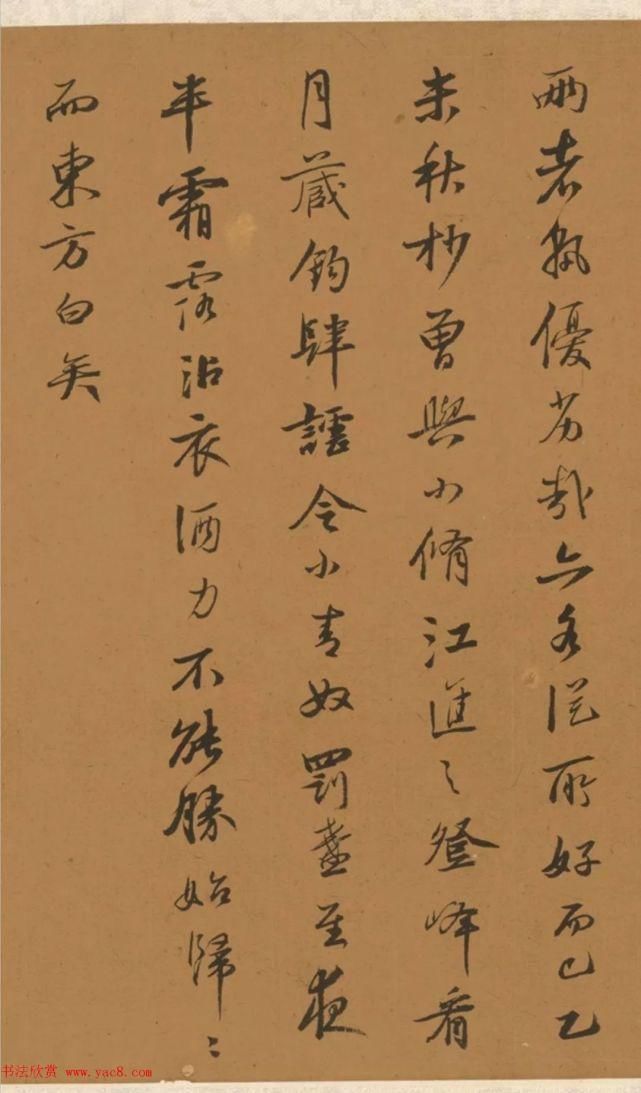 兩者孰優劣哉亦各從所好而已乙
未秋杪曾與小脩江進之登峰看
月藏鉤肆謔令小青奴罰盞至夜
半霜露沾衣酒力不能勝始歸〻
而東方白矣
书法欣赏 www.yac8.com